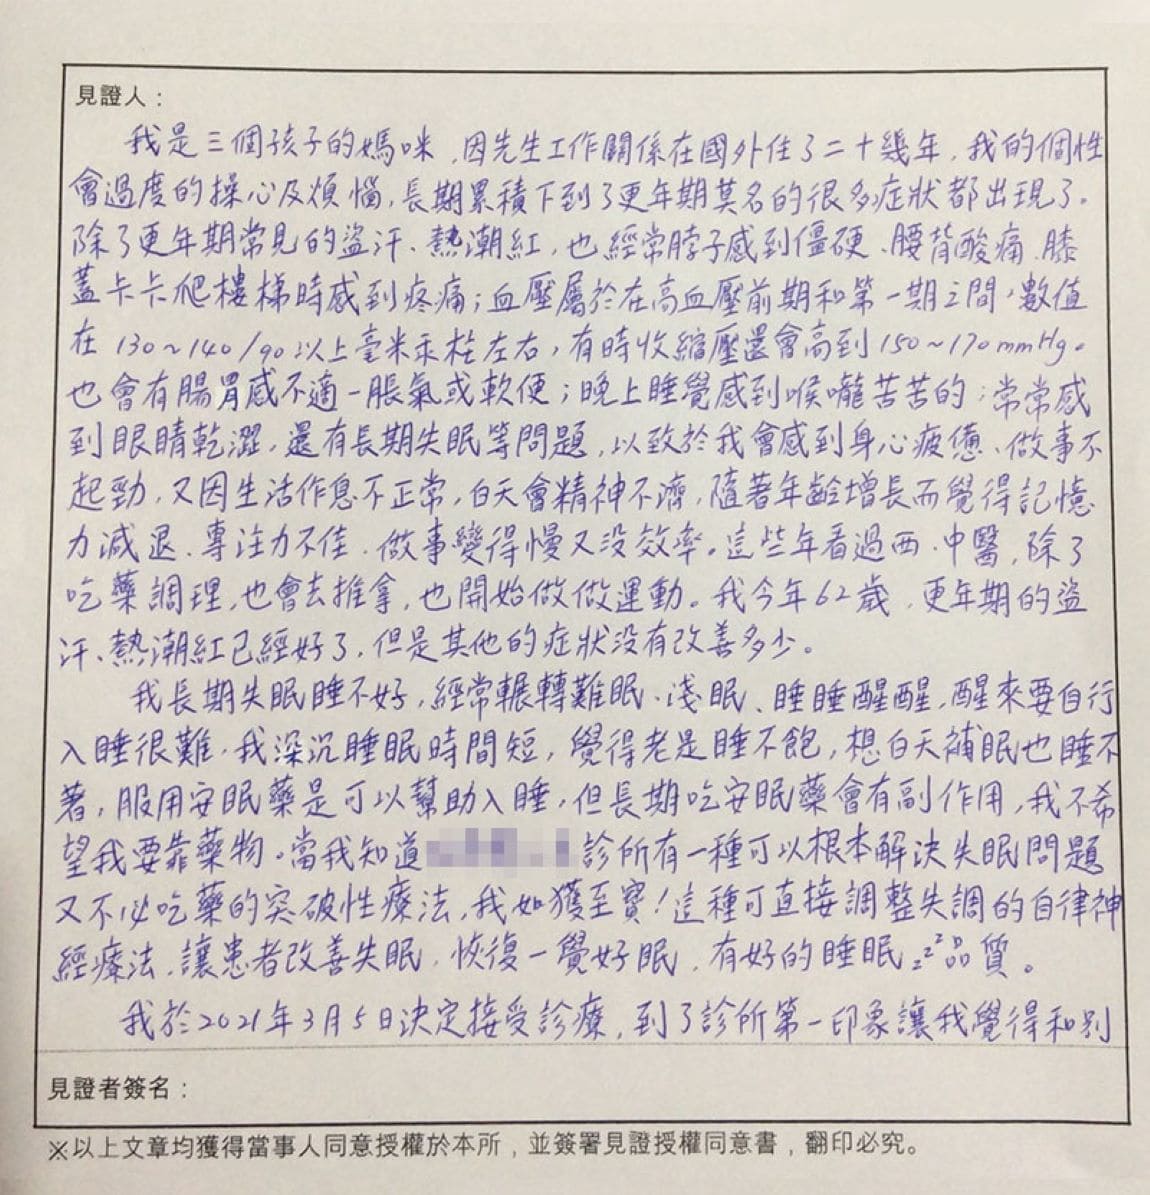 見證人：
我是三個孩子的媽咪，因先生工作關係在國外住了二十幾年，我的個性
會過度的操心及煩惱，長期累積下到了更年期莫名的很多症狀都出現了。
除了更年期常見的盜汗、熱潮紅，也經常脖子感到僵硬、腰背酸痛、膝
蓋卡卡爬樓梯時感到疼痛；血壓屬於在高血壓前期和第一期之間，數值
在130~140/90以上毫米汞柱左右，有時收縮壓還會高到150~170mmHg。
也會有腸胃感不適－脹氣或軟便；晚上睡覺感到喉嚨苦苦的；常常感
到眼睛乾澀，還有長期失眠等問題，以致於我會感到身心疲憊、做事不
起勁，又因生活作息不正常，白天會精神不濟，隨著年齡增長而覺得記憶
力減退、專注力不佳、做事變得慢又沒效率。這些年看過西、中醫，除了
吃藥調理，也會去推拿，也開始做做運動。我今年62歲，更年期的盜
汗、熱潮紅已經好了，但是其他的症狀沒有改善多少。
我長期失眠睡不好，經常輾轉難眠、淺眠、睡睡醒醒，醒來要自行
入睡很難，我深沉睡眠時間短，覺得老是睡不飽，想白天補眠也睡不
著，服用安眠藥是可以幫助入睡，但長期吃安眠藥會有副作用，我不希
望我要靠藥物。當我知道診所有一種可以根本解決失眠問題
又不必吃藥的突破性療法，我如獲至寶！這種可直接調整失調的自律神
經療法，讓患者改善失眠，恢復一覺好眠，有好的睡眠zzz品質。
我於2021年3月5日決定接受診療，到了診所第一印象讓我覺得和別
見證者簽名：
※以上文章均獲得當事人同意授權於本所，並簽署見證授權同意書，翻印必究。